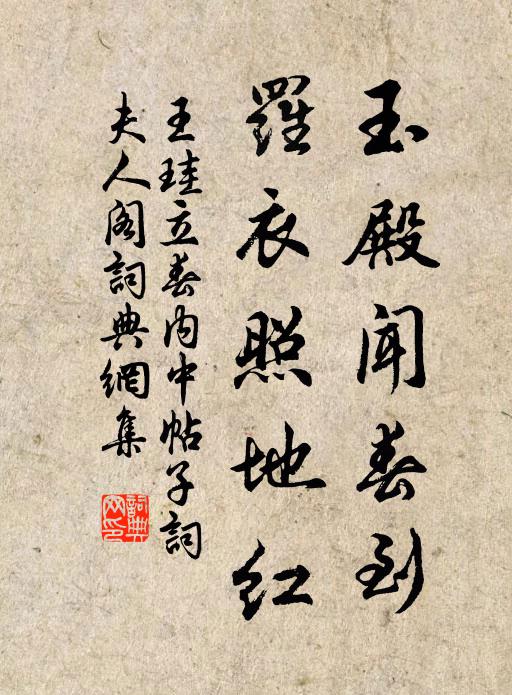 玉殿闻春到
羅衣照地红
王珪立春内中帖子詞
夫人阁詞典網集
詞典
网印